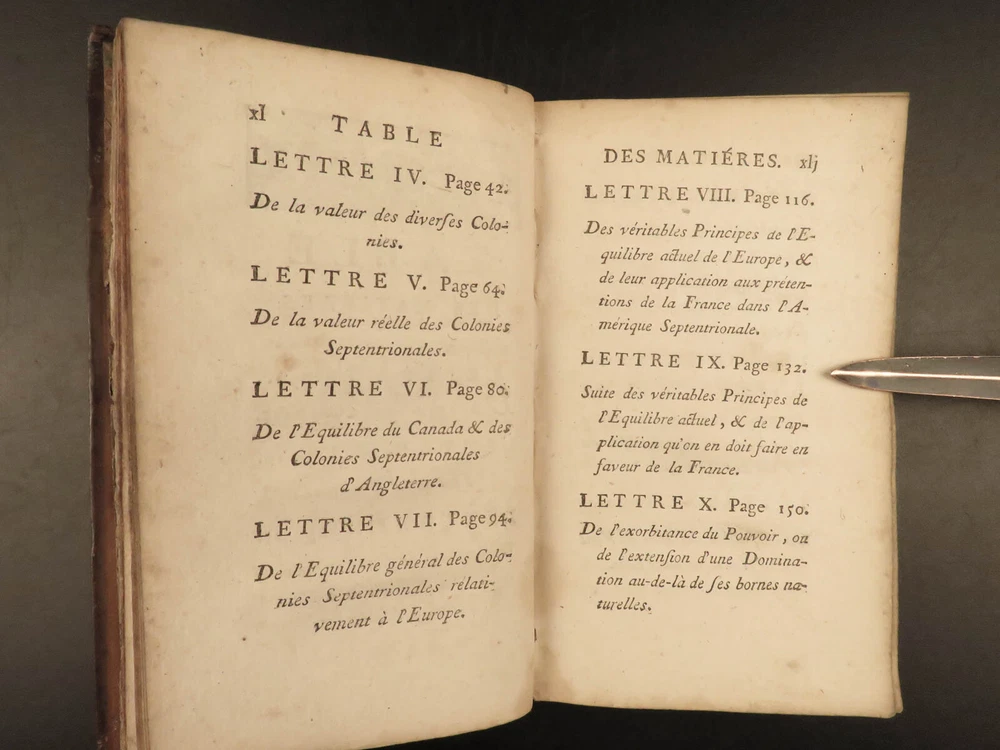 xl TABLE
LETTRE IV. Page 42.
De la valeur des diverſes Colo-
nies.
LETTRE V. Page 64.
De la valeur réelle des Colonies
Septentrionales.
LETTRE VI. Page 80.
De l'Equilibre du Canada & des
Colonies Septentrionales
d'Angleterre.
LETTRE VII. Page 94.
De l'Equilibre général des Colo-
nies Septentrionales rélati-
vement à l'Europe.
DES MATIÉRES. xlj
LETTRE VIII. Page 116.
Des véritables Principes de l'E-
quilibre actuel de l'Europe, &
de leur application aux préten-
tions de la France dans l'A-
mérique Septentrionale.
LETTRE IX. Page 132.
Suite des véritables Principes de
l'Equilibre actuel, & de l'ap-
plication qu'on en doit faire en
faveur de la France.
LETTRE X. Page 150.
De l'exorbitance du Pouvoir, ou
de l'extenſion d'une Domina-
tion au-de-là de ſes bornes na-
turelles.